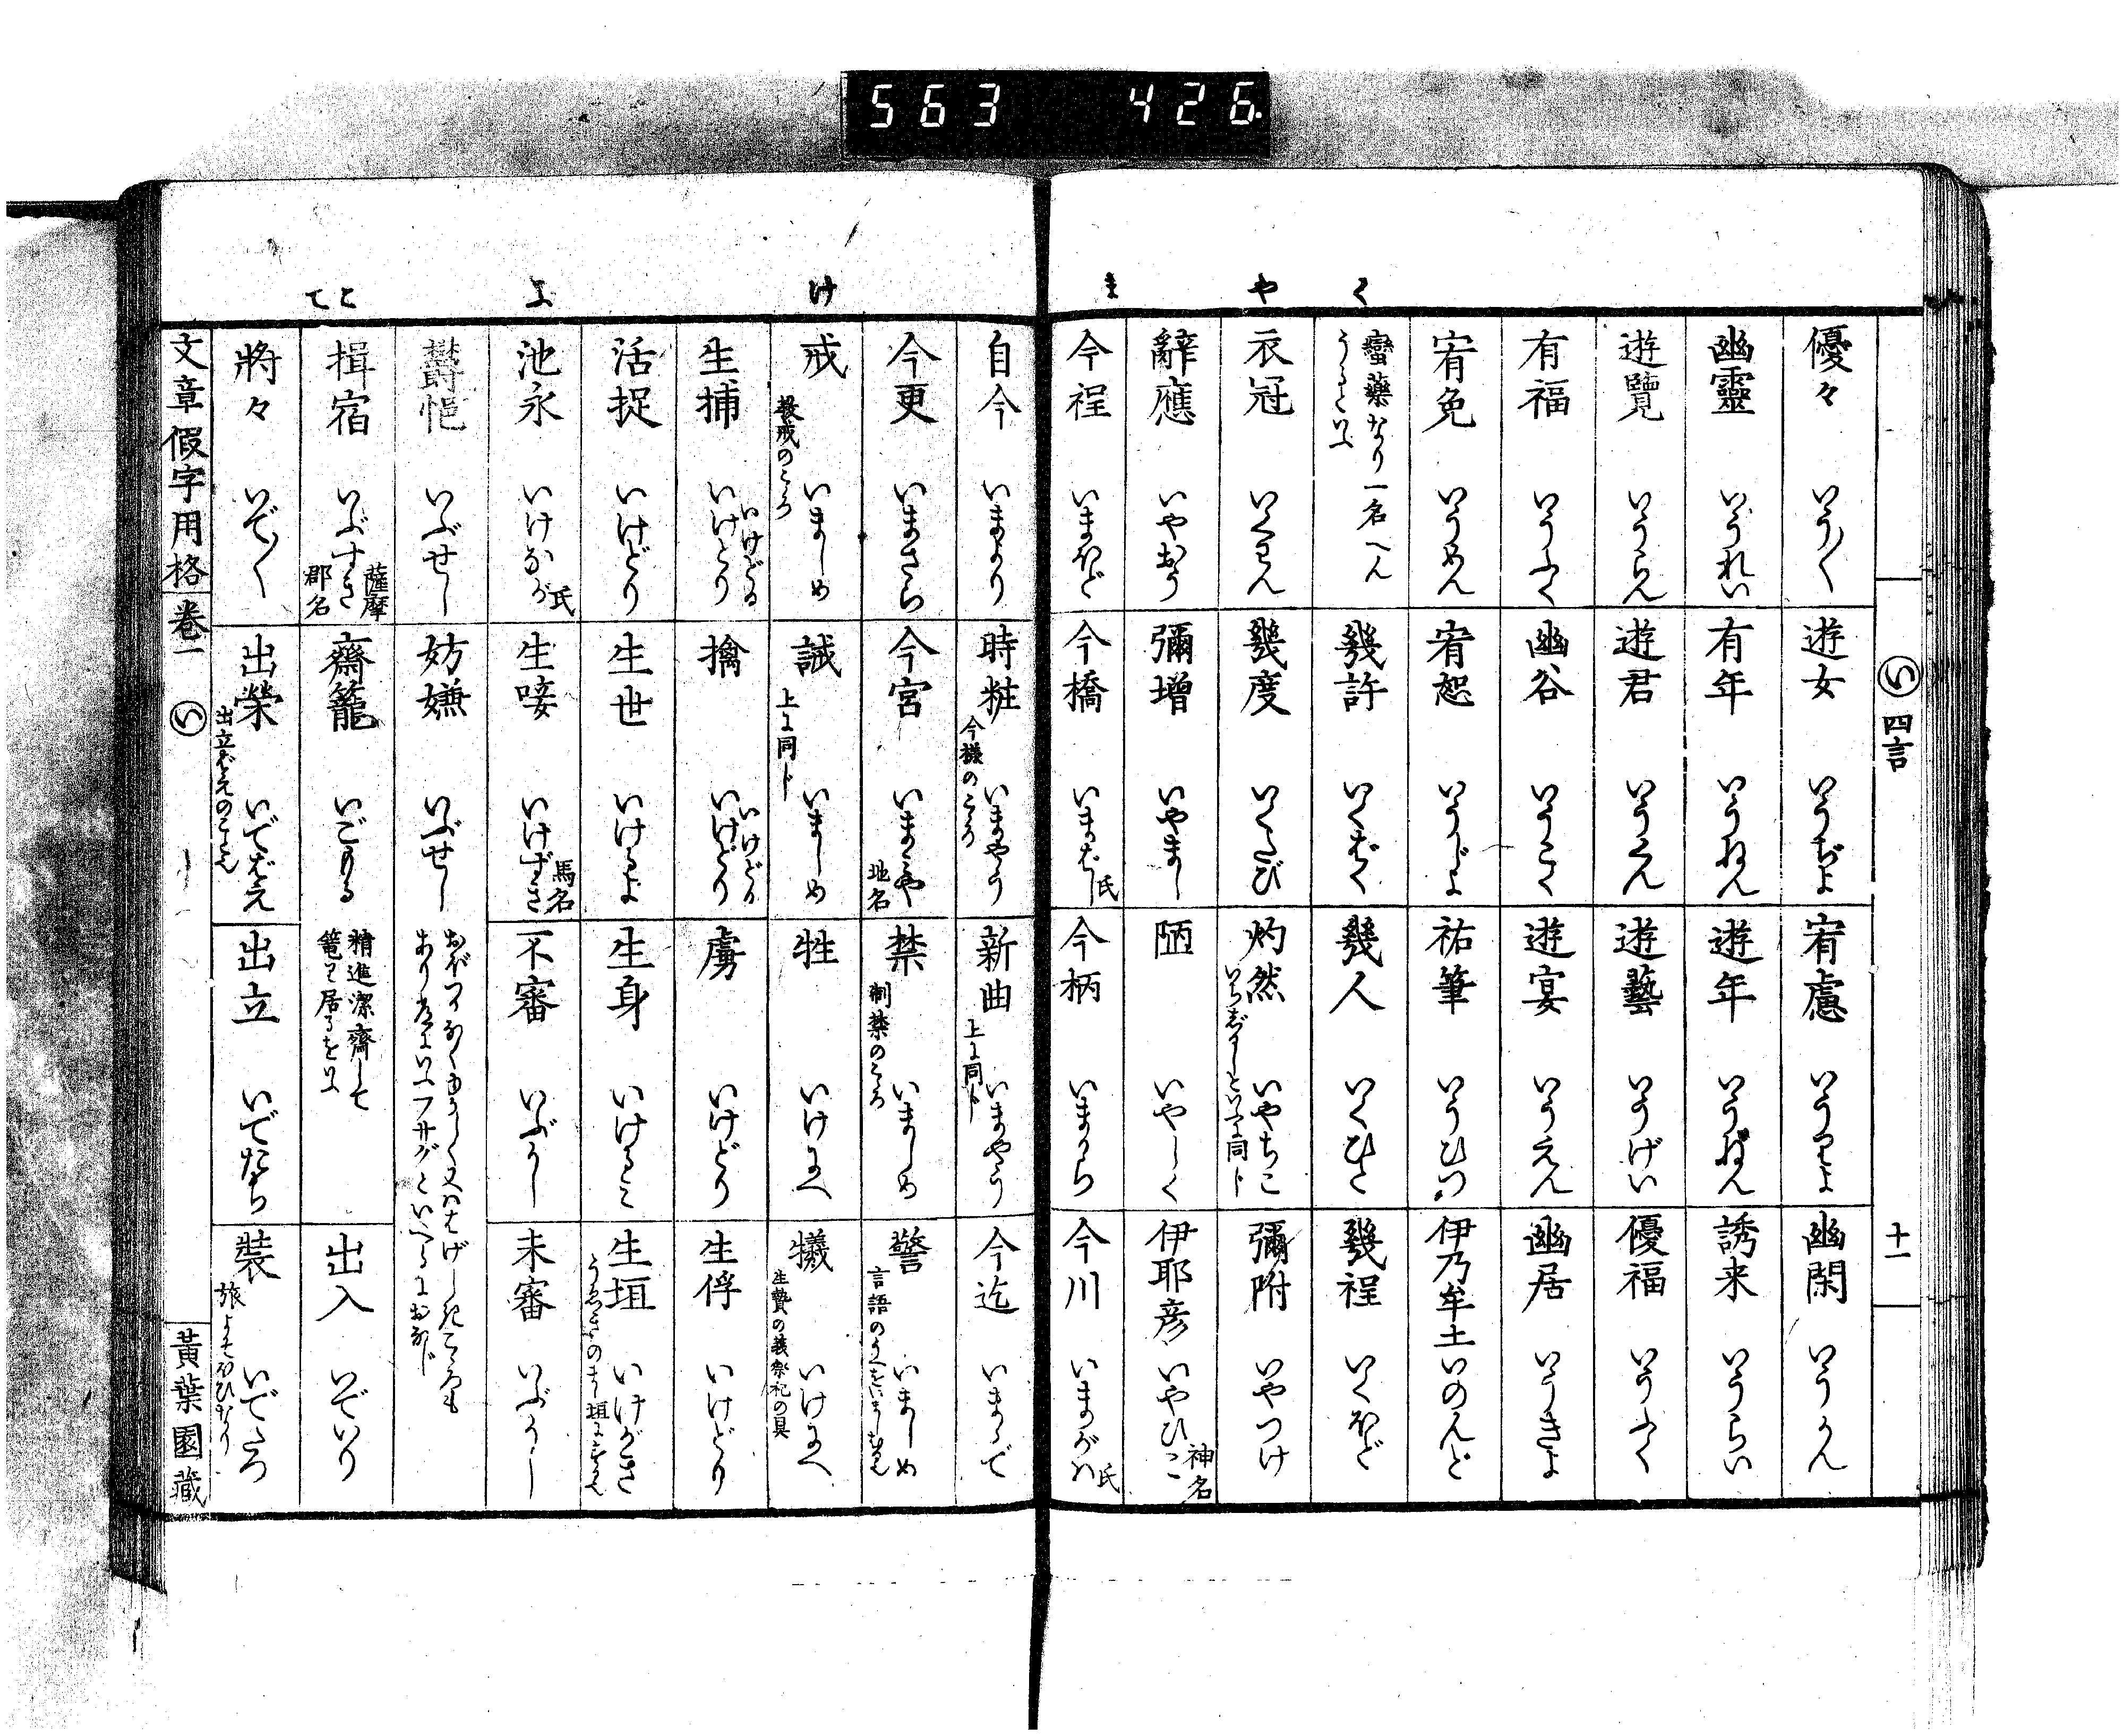 563 426
く
や
ま
い 四言
十一
優々 いう〱
遊女 いうぢよ
宥慮 いうりよ
幽閑 いうかん
幽靈 いうれい
有年 いうねん
遊年 いうねん
誘来 いうらい
遊覽 いうらん
遊君 いうくん
遊藝 いうげい
優福 いうふく
有福 いうふく
幽谷 いうこく
遊宴 いうえん
幽居 いうきよ
宥免 いうめん
宥恕 いうじよ
祐筆 いうひつ
伊乃牟土 いのんど
蠻藥なり一名へん
うるといふ
幾許 いくばく
幾人 いくひと
幾程 いくほど
衣冠 いくわん
幾度 いくたび
灼然 いやちこ
いちじるしといふに同じ
彌附 いやつけ
辭應 いやおう
彌增 いやまし
陋 いやしく
伊耶彦 いやひこ 神名
今程 いまほど
今橋 いまばし 氏
今柄 いまから
今川 いまがは 氏
け
よ
こ
て
自今 いまより
時粧 いまやう
今樣のこゝろ
新曲 いまやう
上に同じ
今迄 いまゝで
今更 いまさら
今宮 いまみや 地名
禁 いましめ
制禁のこゝろ
警 いましめ
戒 いましめ
誡 いましめ
上に同じ
牲 いけにへ
犠 いけにへ
生贄の義祭祀の具
生捕 いけどる
いけとり
擒 いけどる
いけどり
虜 いけどり
生俘 いけどり
活捉 いけどり
生世 いけるよ
生身 いけるみ
生垣 いけがき
池永 いけなが 氏
生唼 いけずき 馬名
不審 いぶかし
未審 いぶかし
欝悒 いぶせし
妨嫌 いぶせし
揖宿 いぶすき 薩摩
郡名
齋籠 いごもる
精進潔齋して
篭り居るをいふ
出入 いでいり
將々 いで〱
出榮 いでばえ
出立 いでたち
裝 いでたち
旅よそほひなり
文章假字用格 巻一 い
黄葉園藏